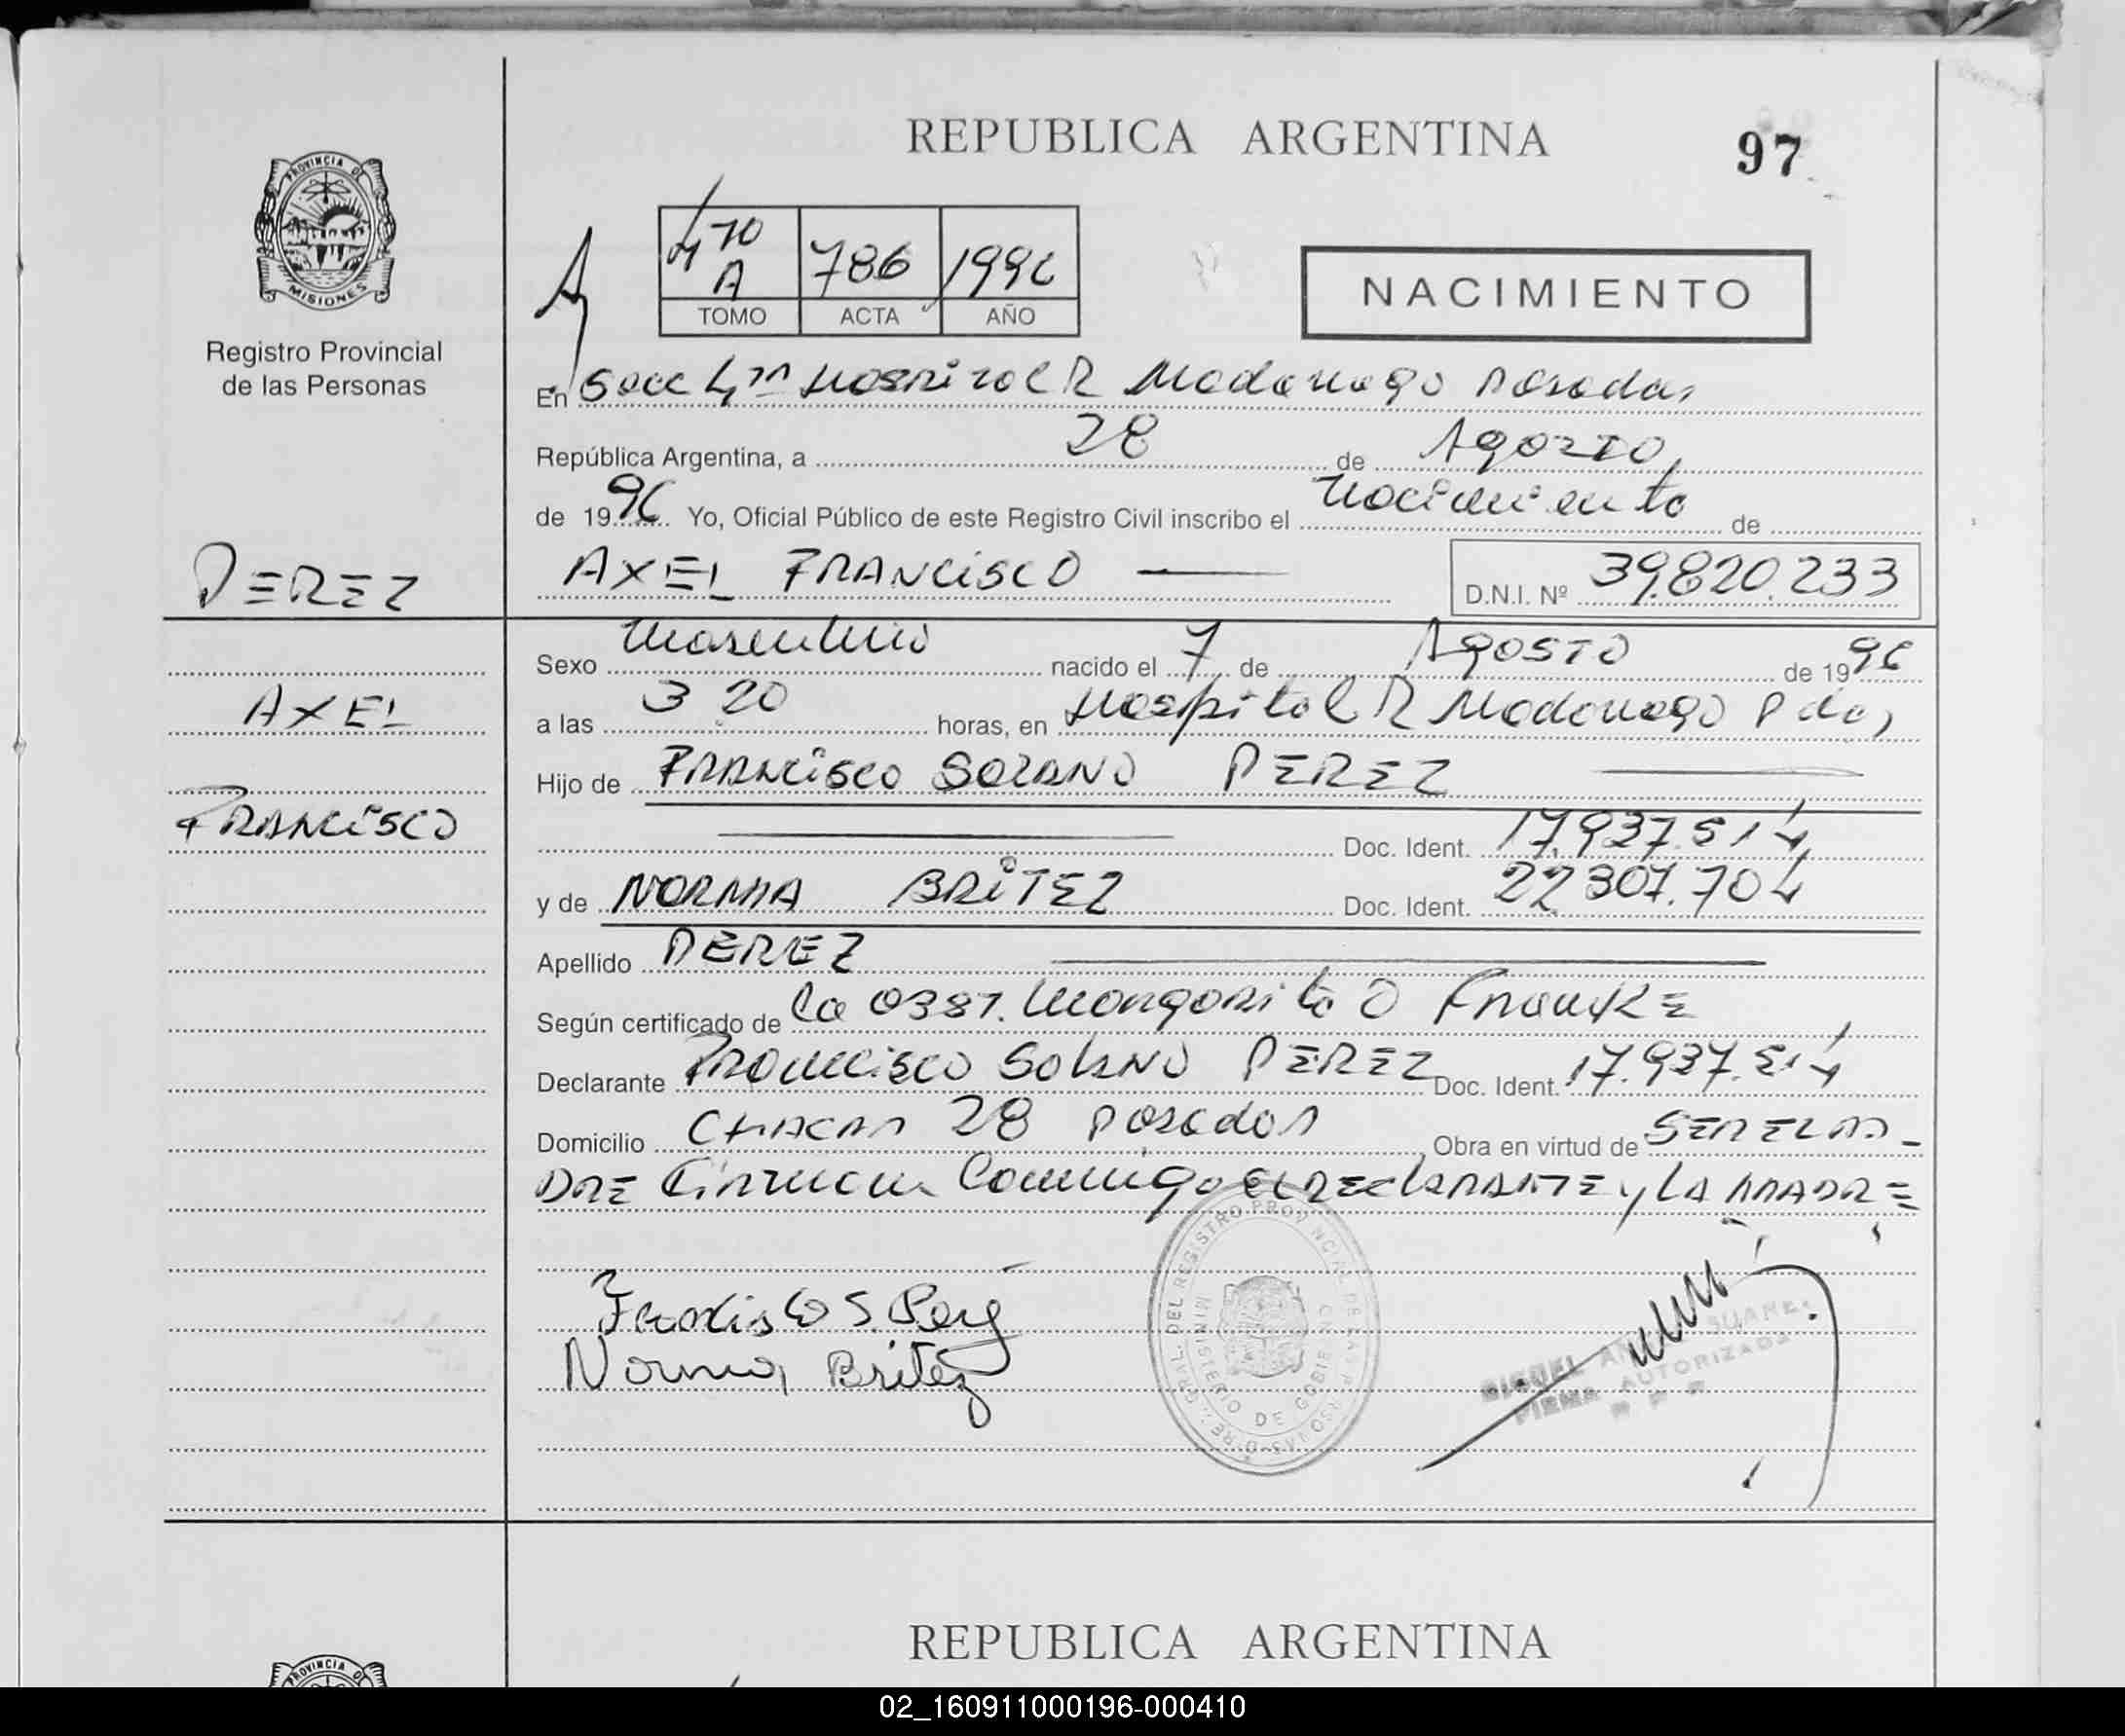 REPUBLICA ARGENTINA
97
PROVINCIA DE
MISIONES
Registro Provincial
de las Personas
470 A 786 1996
TOMO ACTA AÑO
NACIMIENTO
En Secc 4ta Hospital R Madariaga Posadas
República Argentina, a 28 de Agosto
de 1996 Yo, Oficial Público de este Registro Civil inscribo el Nacimiento de
PEREZ
AXEL FRANCISCO
D.N.I. Nº 39.820.233
Sexo Masculino nacido el 7 de AGOSTO de 1996
AXEL
a las 3 20 horas, en Hospital R Madariaga Pdas
Hijo de FRANCISCO SOLANO PEREZ
FRANCISCO
Doc. Ident. 17.937.514
y de NORMA BRITEZ Doc. Ident. 22.307.704
Apellido PEREZ
Según certificado de la Obst. Margarita O Franke
Declarante FRANCISCO SOLANO PEREZ Doc. Ident. 17.937.514
Domicilio CHACRA 28 Posadas Obra en virtud de SER EL PA-
DRE Firman Conmigo El DECLARANTE y LA MADRE
Francisco S. Perez
Norma Britez
MIGUEL SUAREZ
FIRMA AUTORIZADA
REPUBLICA ARGENTINA
PROVINCIA DE
02_160911000196-000410